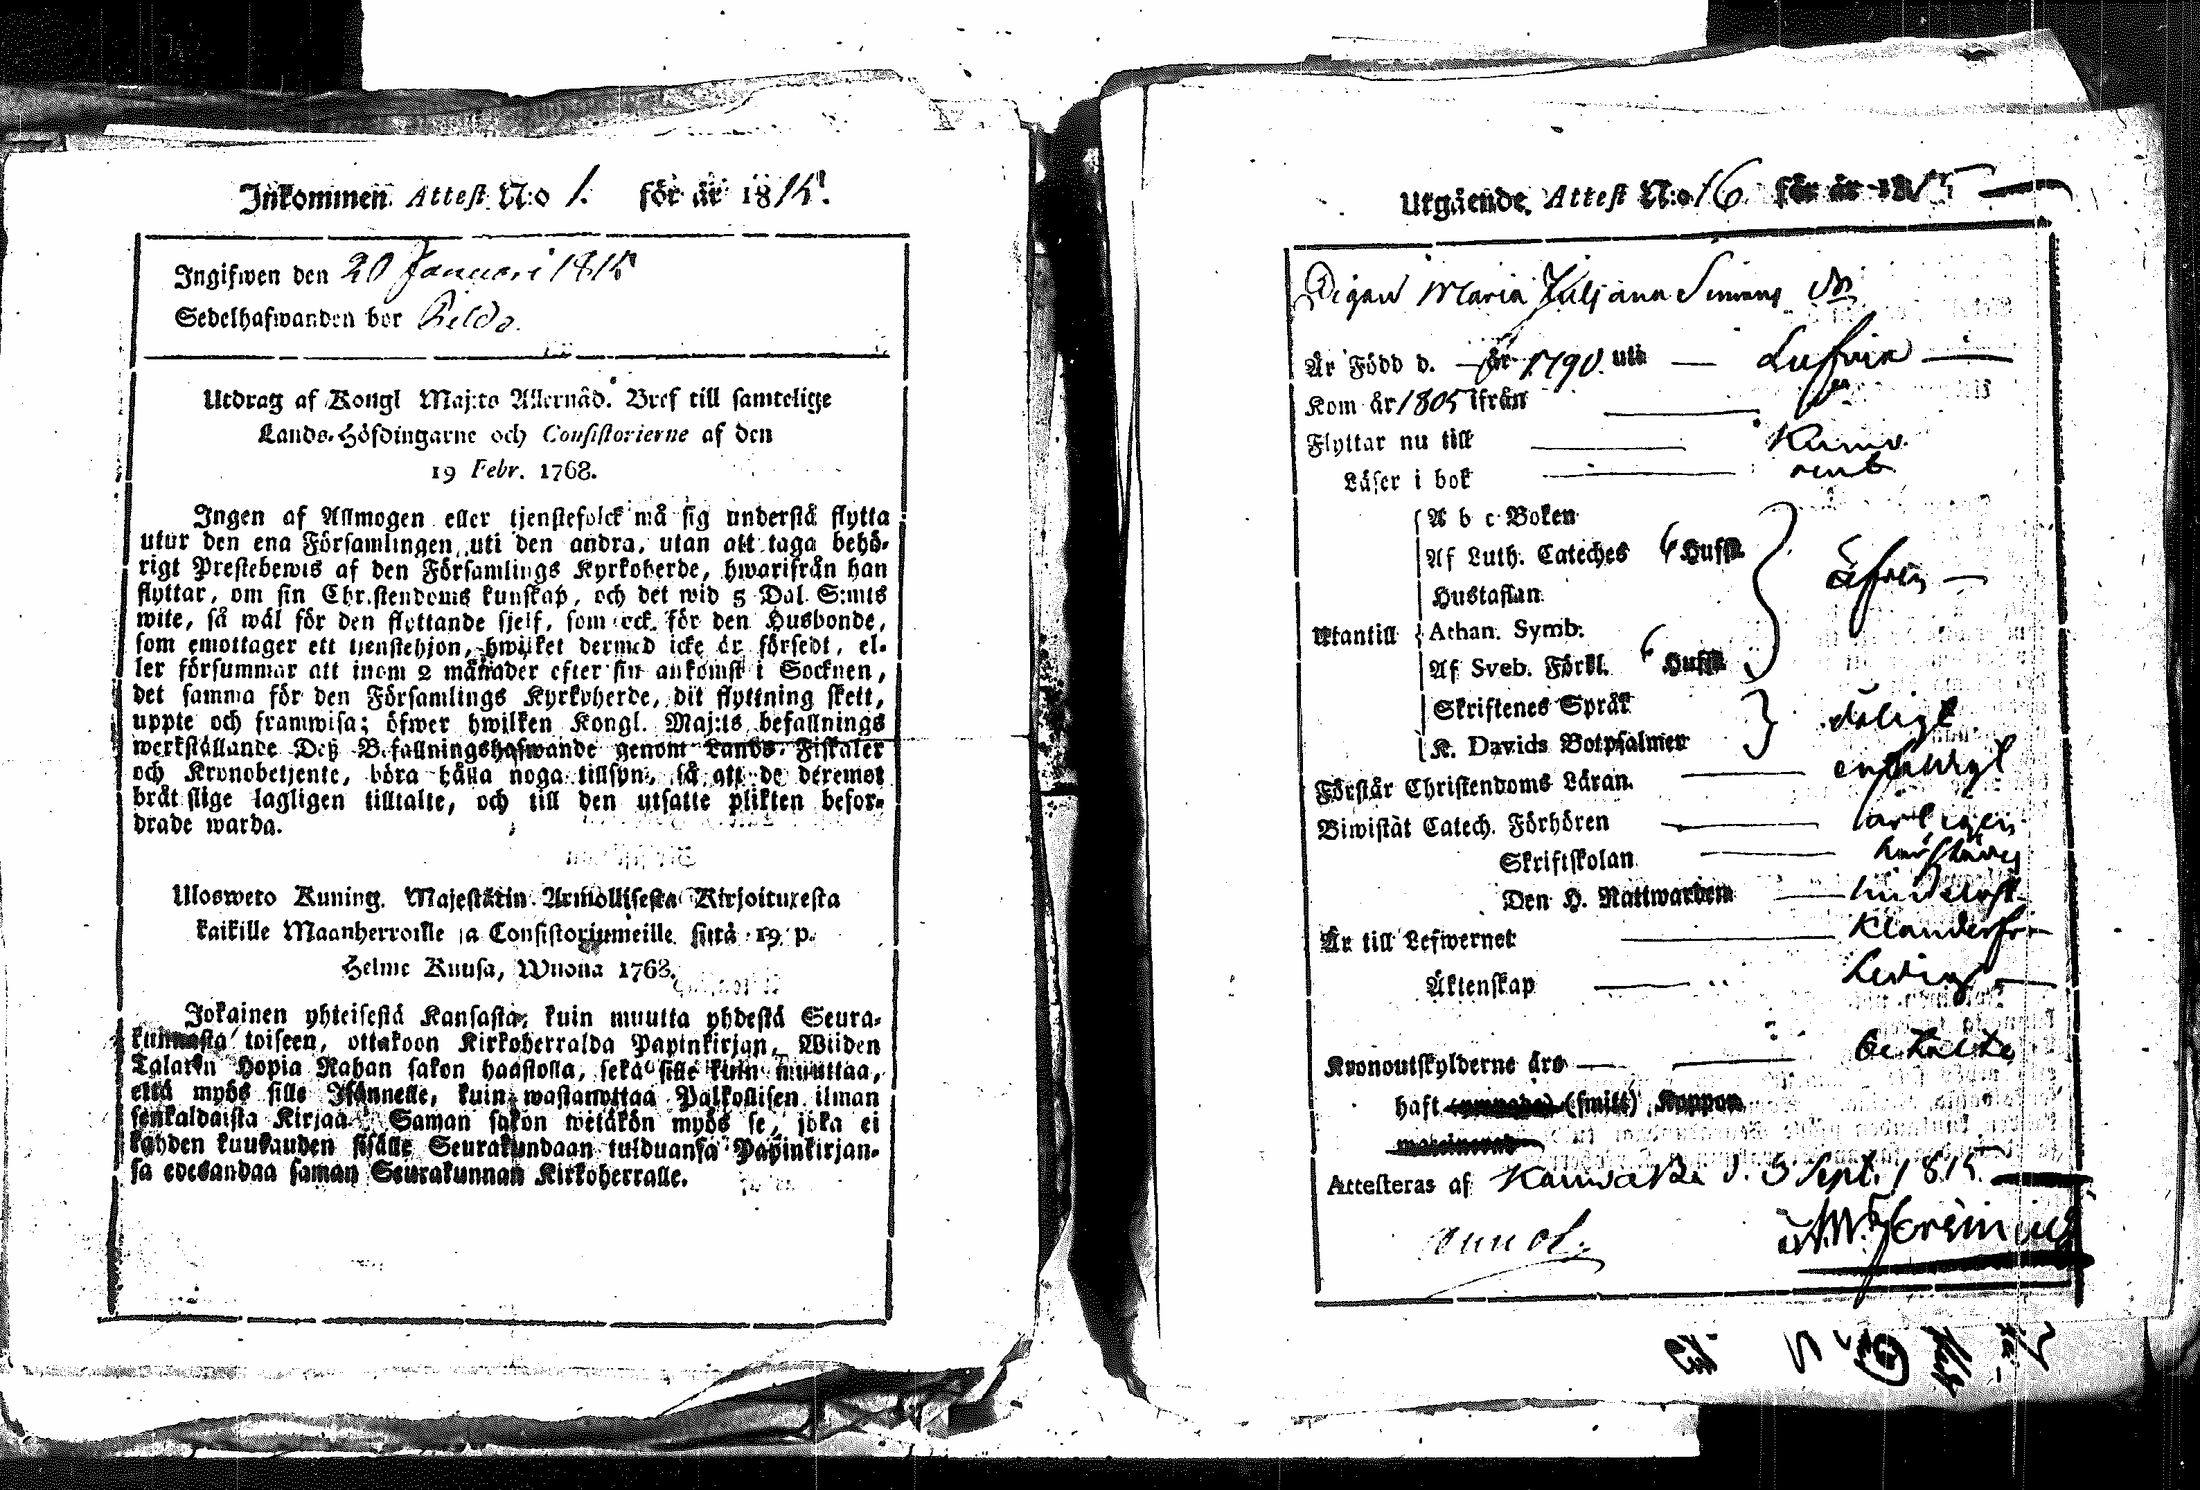 Inkommen Attest N:o 1. för år 1815.
Ingifwen den 20 Januari 1815
Sedelhafwanden bor
Utdrag af Kongl Maj:ts Allernåd. Bref till samtelige
Lands-Höfdingarne och Consistorierne af den
19 Febr. 1768.
Ingen af Allmogen eller tjenstefolck må sig understå flytta
utur den ena Församlingen uti den andra, utan att taga behö-
rigt Prestebewis af den Församlings Kyrkoherde, hwarifrån han
flyttar, om sin Christendoms kunskap, och det wid 5 Dal. S:mts
wite, så wäl för den flyttande sjelf, som ock för den Husbonde,
som emottager ett tjenstehjon, hwilket dermed icke är försedt, el-
ler försummar att inom 2 månader efter sin ankomst i Socknen,
det samma för den Församlings Kyrkoherde, dit flyttning skett,
uppte och framwisa; öfwer hwilken Kongl. Maj:ts befallnings
werkställande Deß Befallningshafwande genom Lands-Fiskaler
och Kronobetjente, böra hålla noga tillsyn, så att de deremot
bråtslige lagligen tilltalte, och till den utsatte plikten befor-
drade warda.
Ulosweto Kuning. Majestätin Armollisesta Kirjoituxesta
kaikille Maanherroille ja Consistoriumeille siitä 19 p.
Helme Kuusa, Wuona 1768.
Jokainen yhteisestä Kansasta, kuin muutta yhdestä Seura-
kunnasta toiseen, ottakoon Kirkoherralda Papinkirjan, Wiiden
Talarin Hopia Rahan sakon haastolla, sekä sille kuin muuttaa,
että myös sille Isännelle, kuin wastanottaa Palkollisen ilman
senkaldaista Kirjaa. Saman sakon wetäkön myös se, joka ei
kahden kuukauden sisälle Seurakundaan tulduansa Papinkirjan-
sa edesandaa saman Seurakunnan Kirkoherralle.
Utgående Attest N:o 16 för år 1815
Pigan Maria Juljana Simons
År Född d. år 1790. uti
Kom år 1805 ifrån
Flyttar nu till Kumo
Läser i bok rent
A b c Boken
Af Luth. Cateches 6 Hufst.
Hustaflan
Utantill Athan. Symb.
Af Sveb. Förkl. 6 Hufst.
Skriftenes Språk dåligt
K. Davids Botpsalmer
Förstår Christendoms Läran enfaldigt
Biwistat Catech. Förhören årligen
Skriftskolan
Den H. Nattwarden
Är till Lefwernet Klanderfri
Äktenskap Ledig
Kronoutskylderne års betalte
haft (smitt) Koppor
Attesteras af d. 5 Sept. 1815